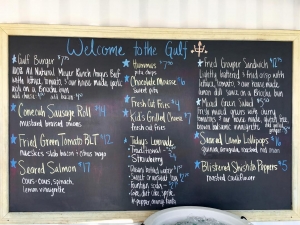 Welcome to the Gulf
Gulf Burger $7
All Natural Meyer Ranch Angus Beef
with lettuce, tomato & our house made garlic
on a Brioche bun
add cheese add bacon
Conecuh Sausage Roll $4
mustard braised onions
Fried Green Tomato BLT $12
bacon & citrus mayo
Seared Salmon $17
Cous-Cous, spinach,
lemon vinaigrette
Hummus $7
pita chips
Chocolate Mousse $6
sweet pita
Fresh Cut Fries $4
Kid's Grilled Cheese $7
fresh cut fries
Todays Lemonade
Traditional
Strawberry
Sweet or
Fountain sodas
Coke, diet Coke, Sprite
Fried Grouper Sandwich $12
lightly battered & fried crisp with
lettuce, tomato & our house made
lemon aioli on a Brioche bun
Mixed Green Salad $5
fresh mixed greens with cherry
tomatoes & our house made
brown balsamic vinaigrette
Seared Lamb Lollipops $16
Blistered Shishito Peppers $5
roasted cauliflower